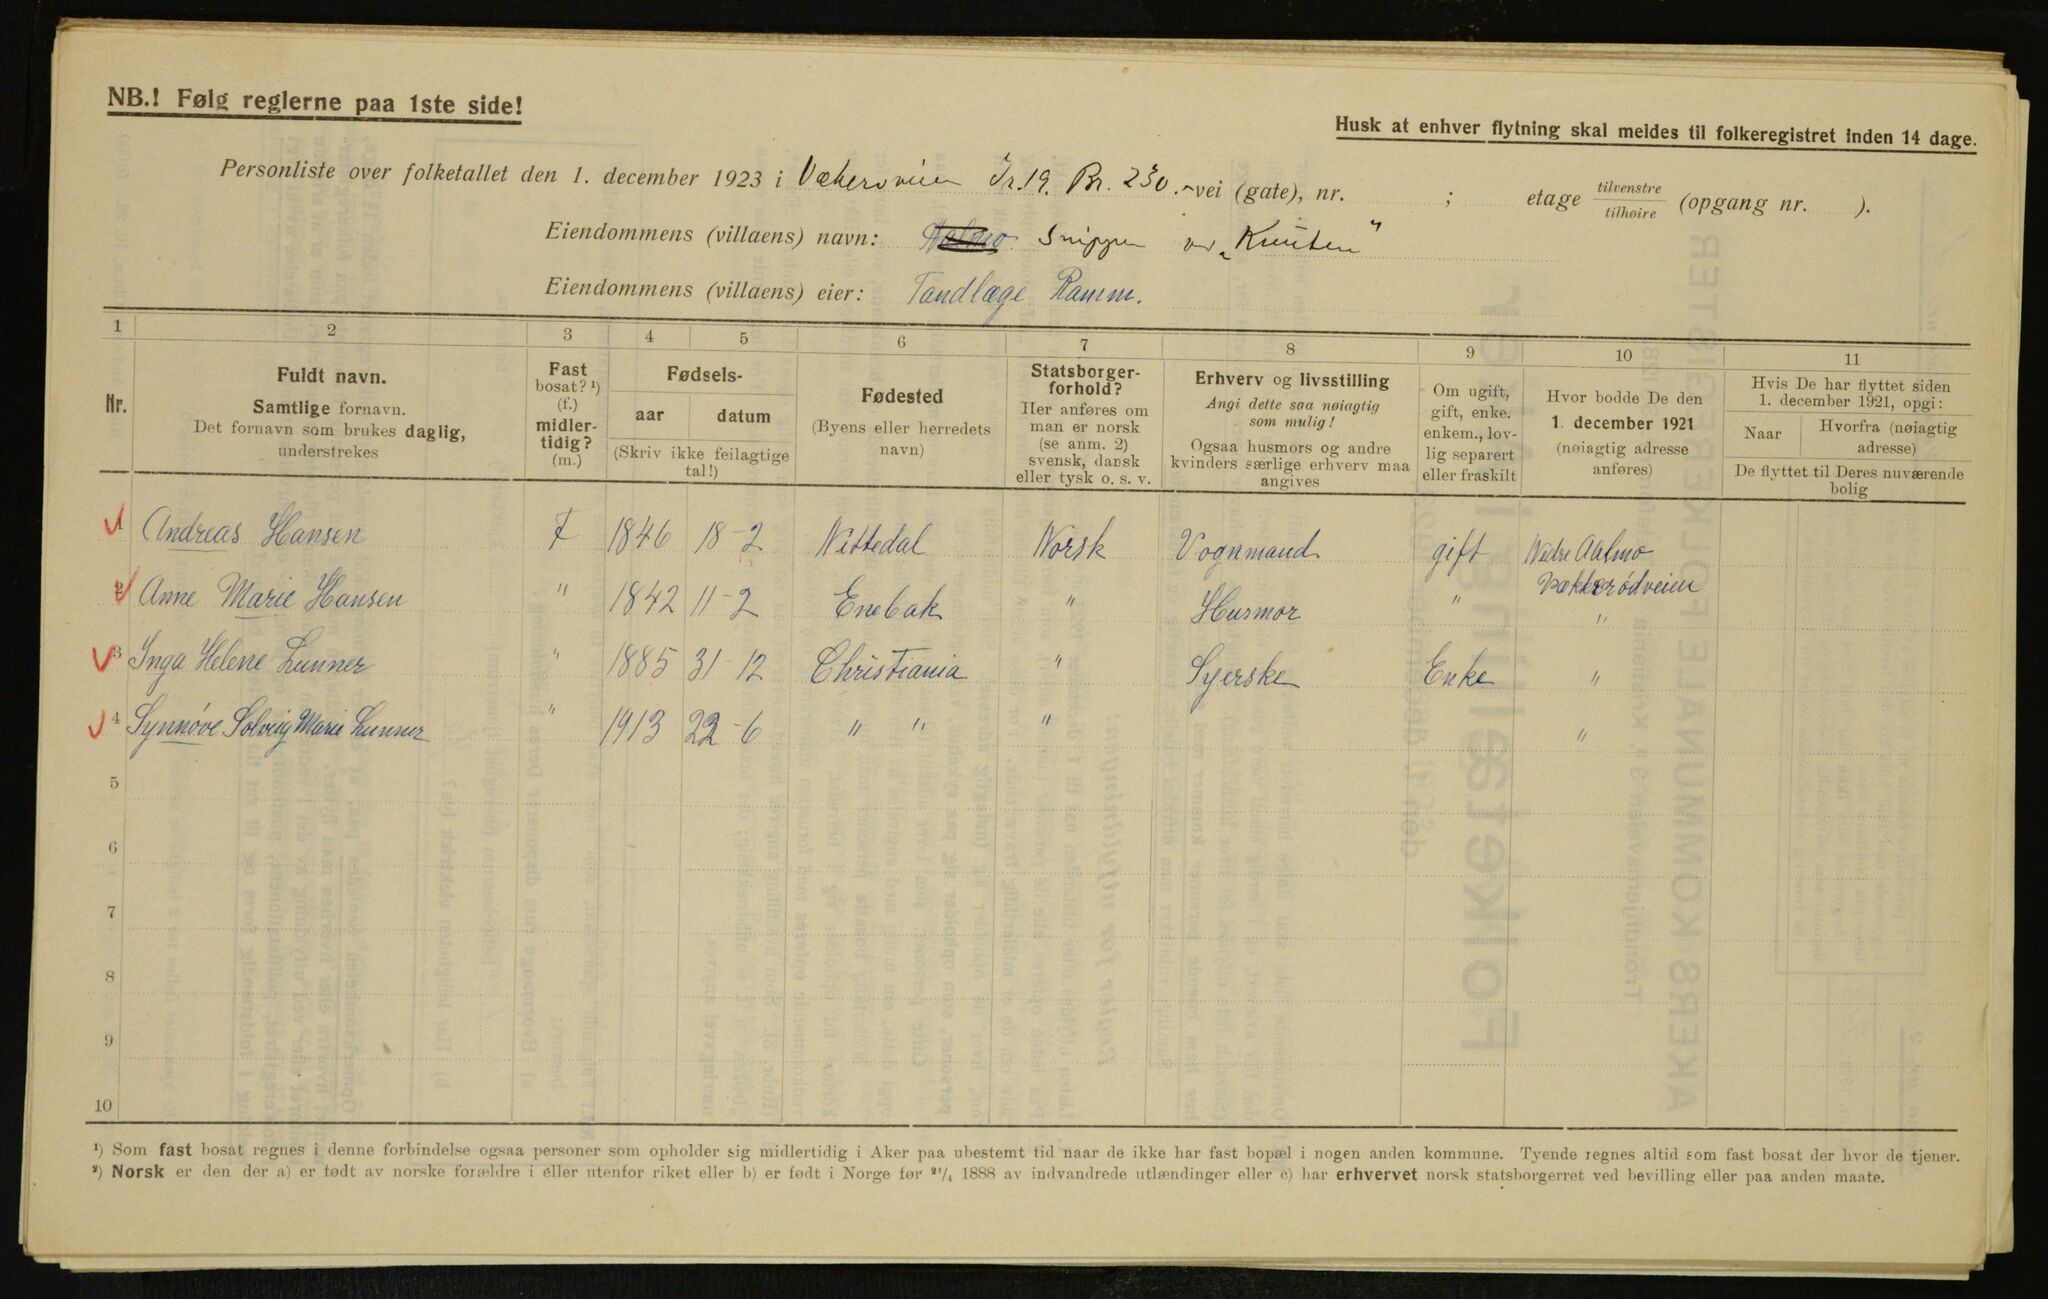 NB.! Følg reglerne paa 1ste side!
Husk at enhver flytning skal meldes til folkeregistret inden 14 dage.
Personliste over folketallet den 1. december 1923 i Vækerøveien Gr. 19. Br. 230. -vei (gate), nr. ; etage tilvenstre / tilhøire (opgang nr. ).
Eiendommens (villaens) navn: "Knuten"
Eiendommens (villaens) eier: Tandlæge Ramm.
1 2 3 4 5 6 7 8 9 10 11
Nr.
Fuldt navn.
Samtlige fornavn.
Det fornavn som brukes daglig,
understrekes
Fast
bosat? ¹)
(f.)
midler-
tidig?
(m.)
Fødsels-
aar datum
(Skriv ikke feilagtige
tal!)
Fødested
(Byens eller herredets
navn)
Statsborger-
forhold?
Her anføres om
man er norsk
(se anm. 2)
svensk, dansk
eller tysk o. s. v.
Erhverv og livsstilling
Angi dette saa nøiagtig
som mulig!
Ogsaa husmors og andre
kvinders særlige erhverv maa
angives
Om ugift,
gift, enke.
enkem., lov-
lig separert
eller fraskilt
Hvor bodde De den
1. december 1921
(nøiagtig adresse
anføres)
Hvis De har flyttet siden
1. december 1921, opgi:
Naar Hvorfra (nøiagtig
adresse)
De flyttet til Deres nuværende
bolig
1 Andreas Hansen F 1846 18-2 Nittedal Norsk Vognmand gift Nedre Aalmo
Vækkerødveien
2 Anne Marie Hansen " 1842 11-2 Enebak " Husmor " "
3 Inga Helene Lunner " 1885 31-12 Christiania " Syerske Enke "
4 Synnøve Solveig Marie Lunner " 1913 22-6 " " " "
5
6
7
8
9
10
¹) Som fast bosat regnes i denne forbindelse ogsaa personer som opholder sig midlertidig i Aker paa ubestemt tid naar de ikke har fast bopæl i nogen anden kommune. Tyende regnes altid som fast bosat der hvor de tjener.
²) Norsk er den der a) er født av norske forældre i eller utenfor riket eller b) er født i Norge før ²¹/₄ 1888 av indvandrede utlændinger eller c) har erhvervet norsk statsborgerret ved bevilling eller paa anden maate.